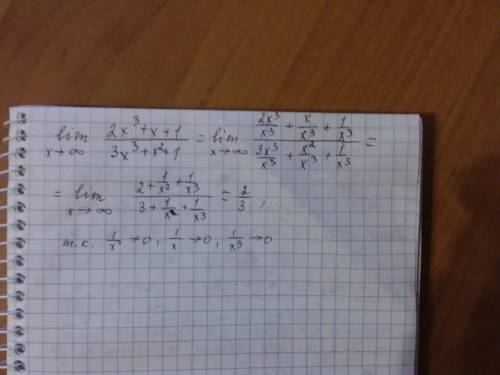 lim x→∞ (2x³+x+1)/(3x³+x²+1) = lim x→∞ (2x³/x³ + x/x³ + 1/x³)/(3x³/x³ + x²/x³ + 1/x³) =
= lim x→∞ (2 + 1/x² + 1/x³)/(3 + 1/x + 1/x³) = 2/3,
т.к. 1/x² → 0, 1/x → 0, 1/x³ → 0